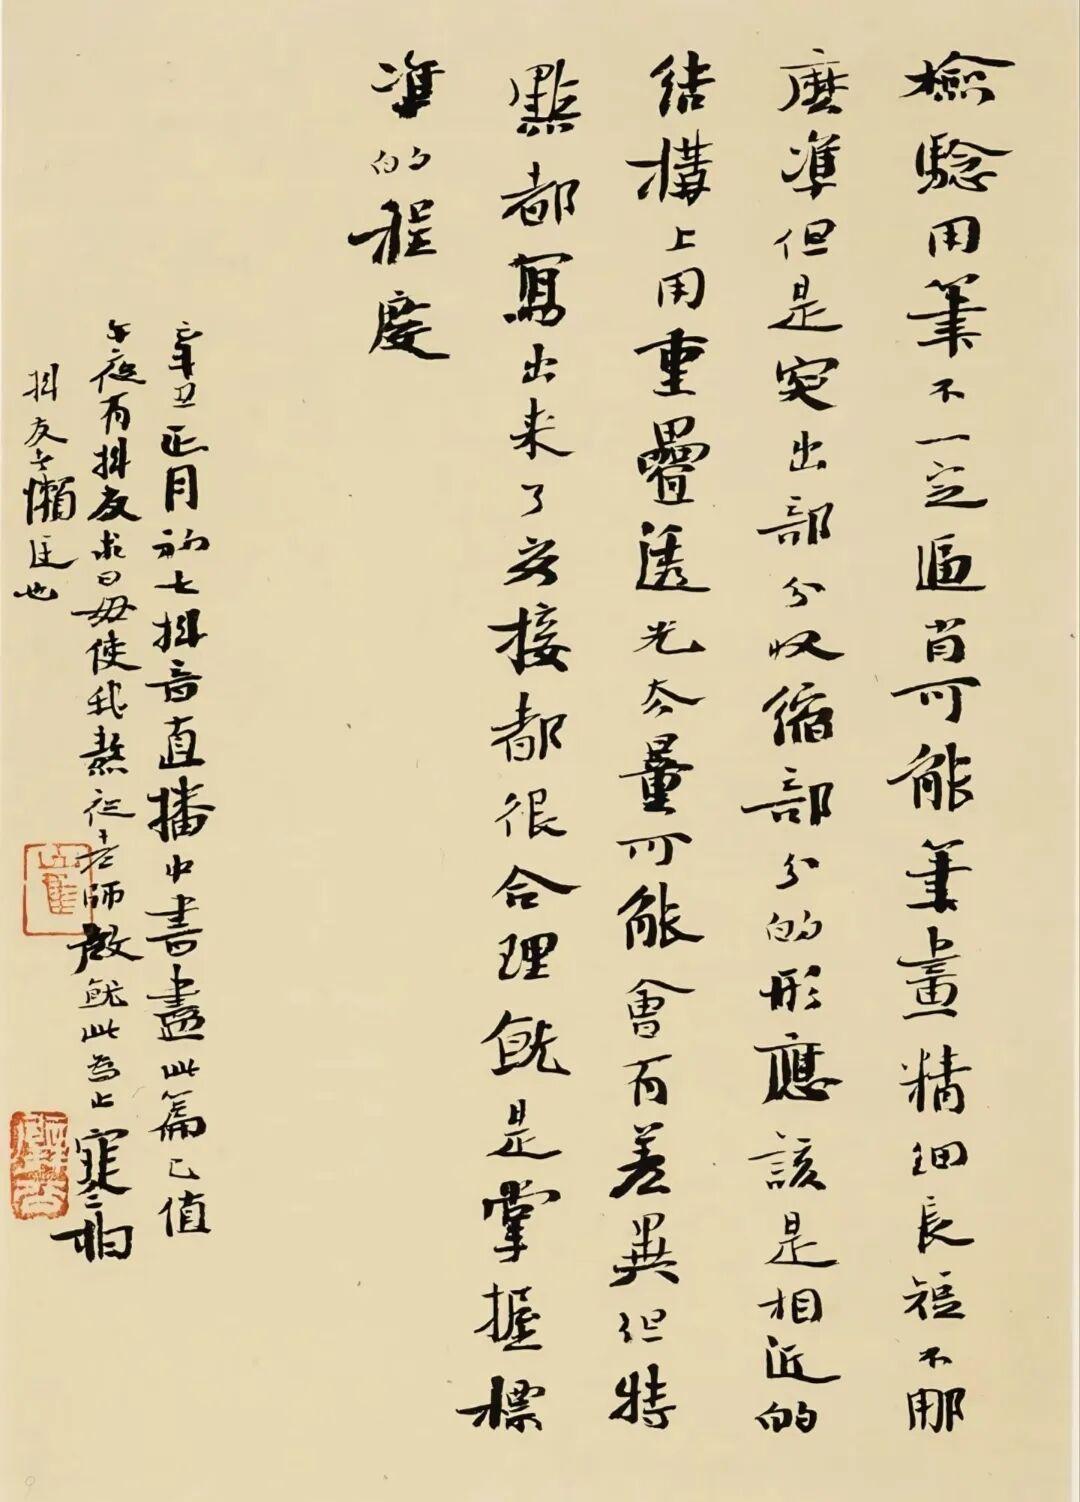 檢驗用筆不一定逼肖可能筆畫精細長短不那
麽準但是突出部分收縮部分的形應該是相近的
結構上用重疊透光大量可能會有差異但特
點都寫出來了交接都很合理就是掌握標
準的程度
辛丑正月初七抖音直播中書盡此篇已值
午夜有抖友求曰毋使我熬夜老師啟就此爲止寇柏
抖友之懶
也